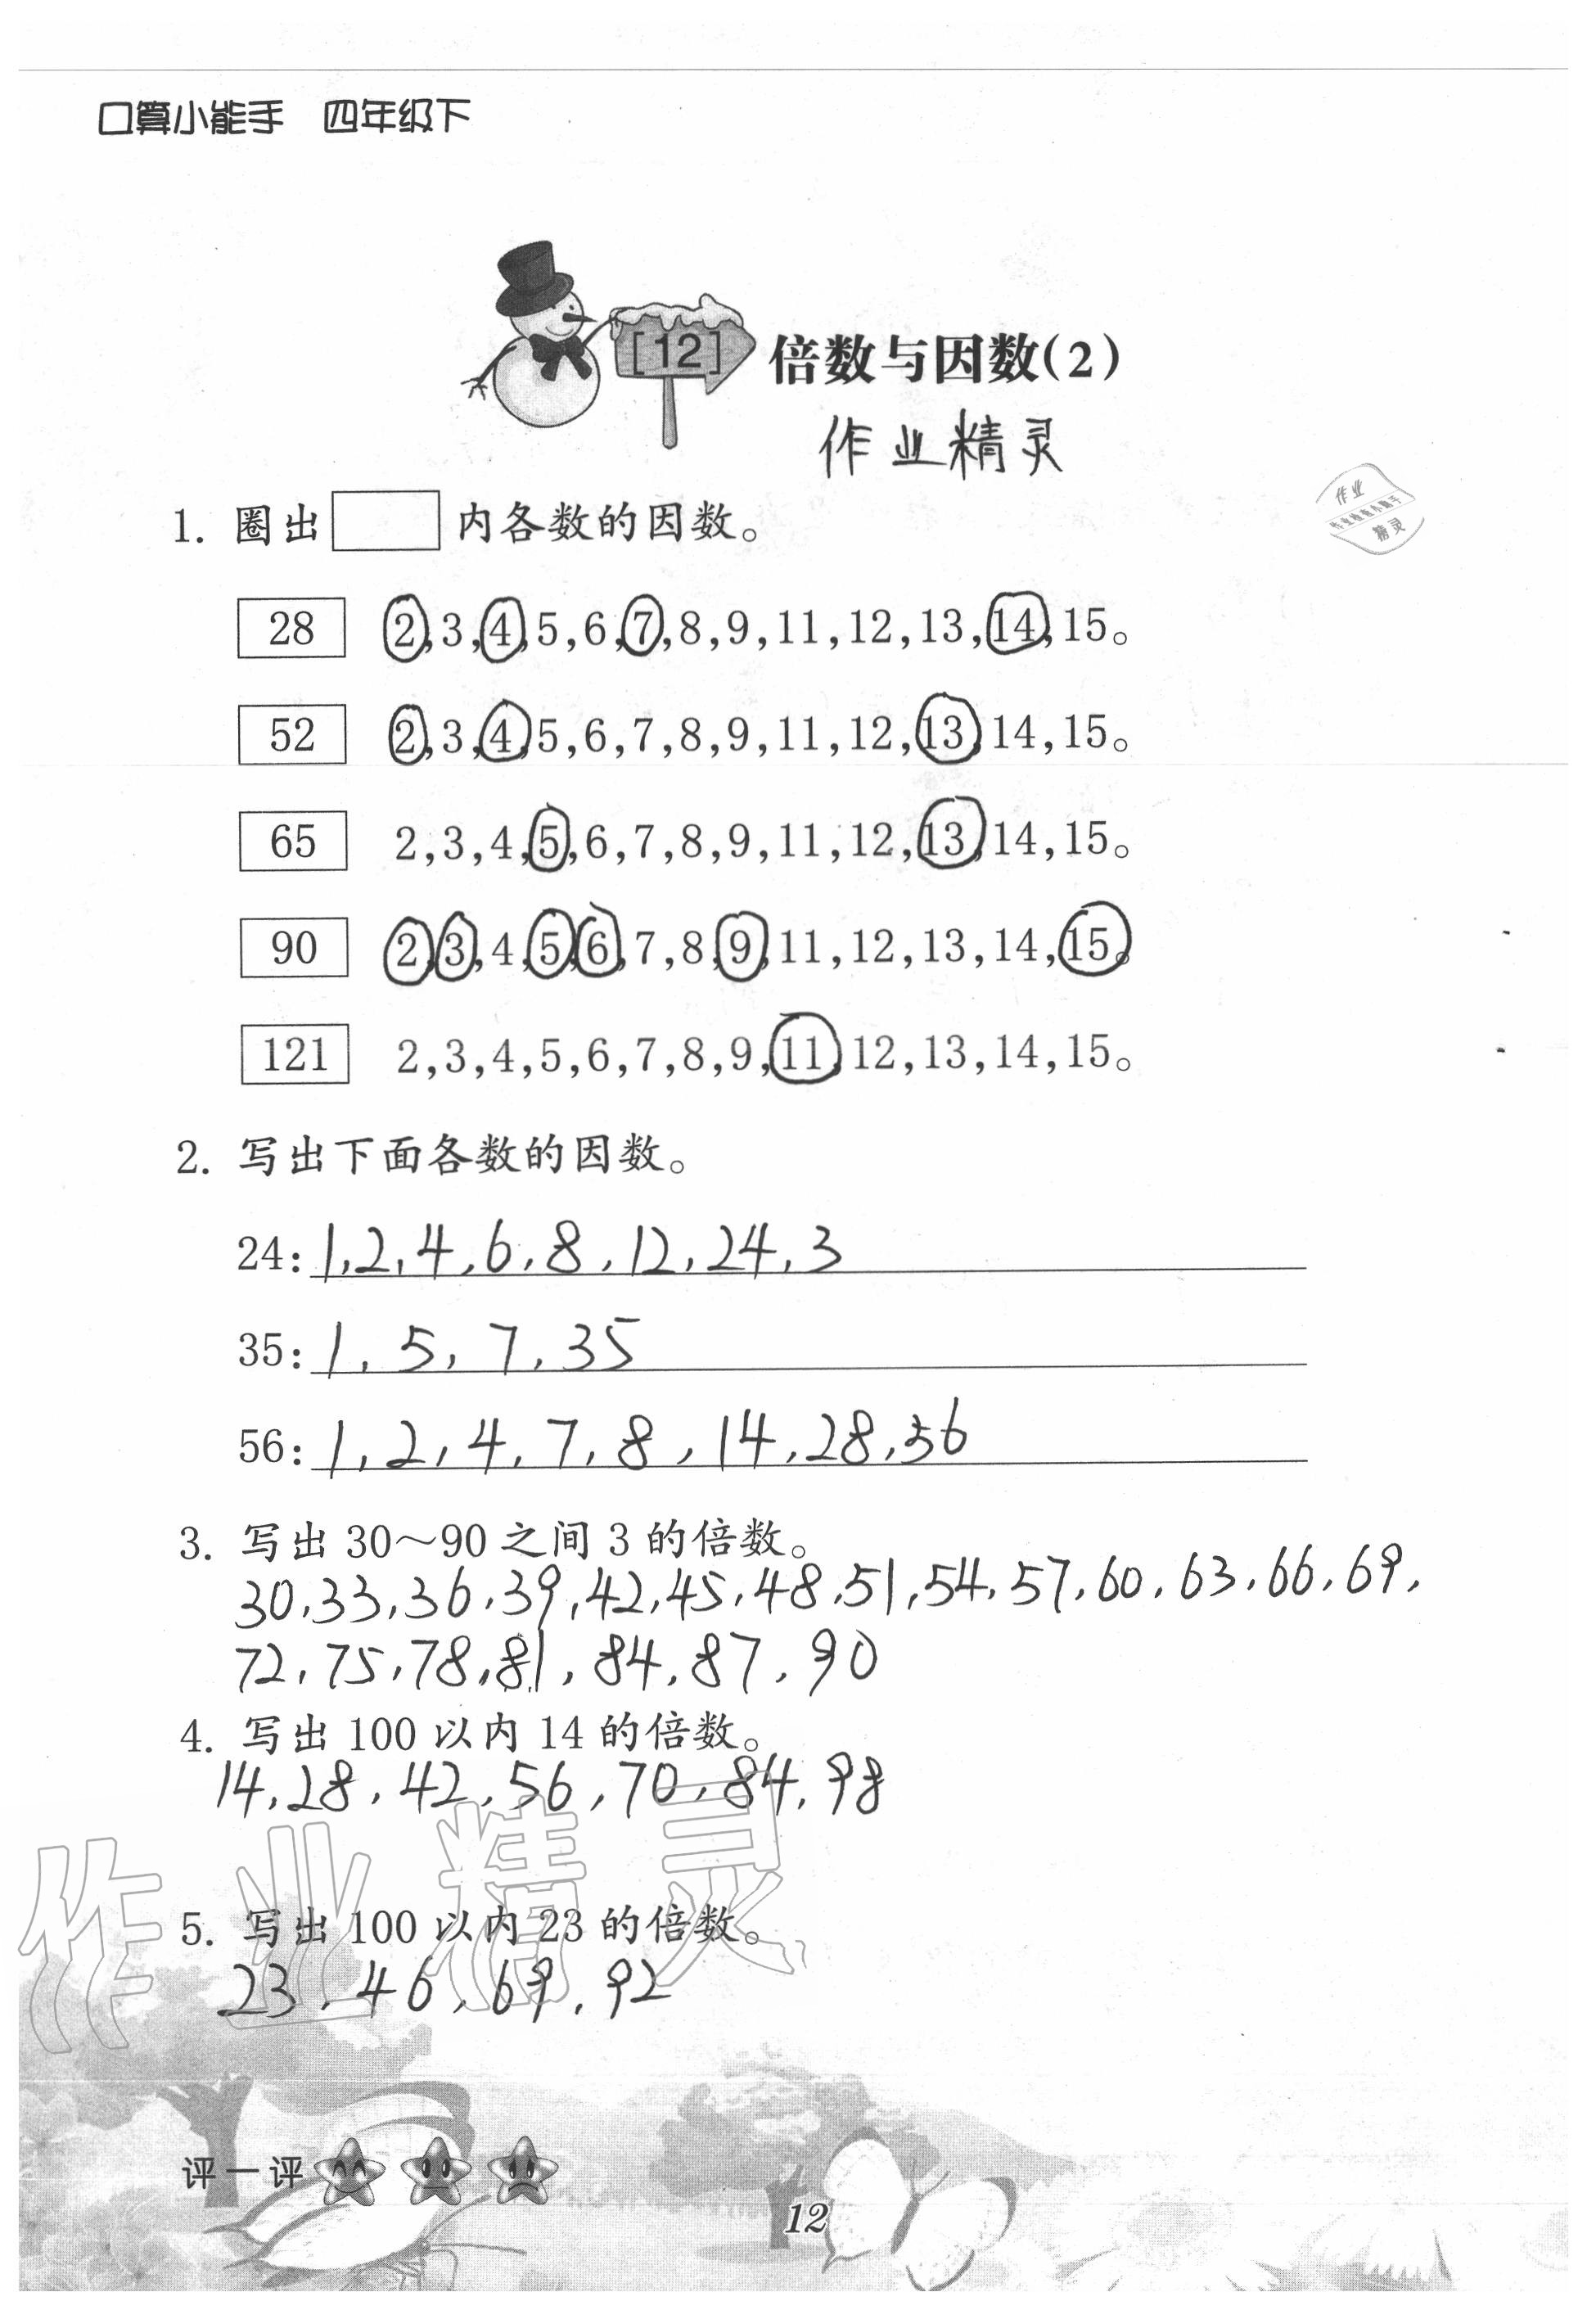 口算小能手 四年级下
[12] 倍数与因数(2)
作业精灵
作业
精灵
1. 圈出 内各数的因数。
28 2,3,4,5,6,7,8,9,11,12,13,14,15。
52 2,3,4,5,6,7,8,9,11,12,13,14,15。
65 2,3,4,5,6,7,8,9,11,12,13,14,15。
90 2,3,4,5,6,7,8,9,11,12,13,14,15。
121 2,3,4,5,6,7,8,9,11,12,13,14,15。
2. 写出下面各数的因数。
24: 1,2,4,6,8,12,24,3
35: 1,5,7,35
56: 1,2,4,7,8,14,28,56
3. 写出 30～90 之间 3 的倍数。
30,33,36,39,42,45,48,51,54,57,60,63,66,69,
72,75,78,81,84,87,90
4. 写出 100 以内 14 的倍数。
14,28,42,56,70,84,98
作业精灵
5. 写出 100 以内 23 的倍数。
23,46,69,92
评一评
12